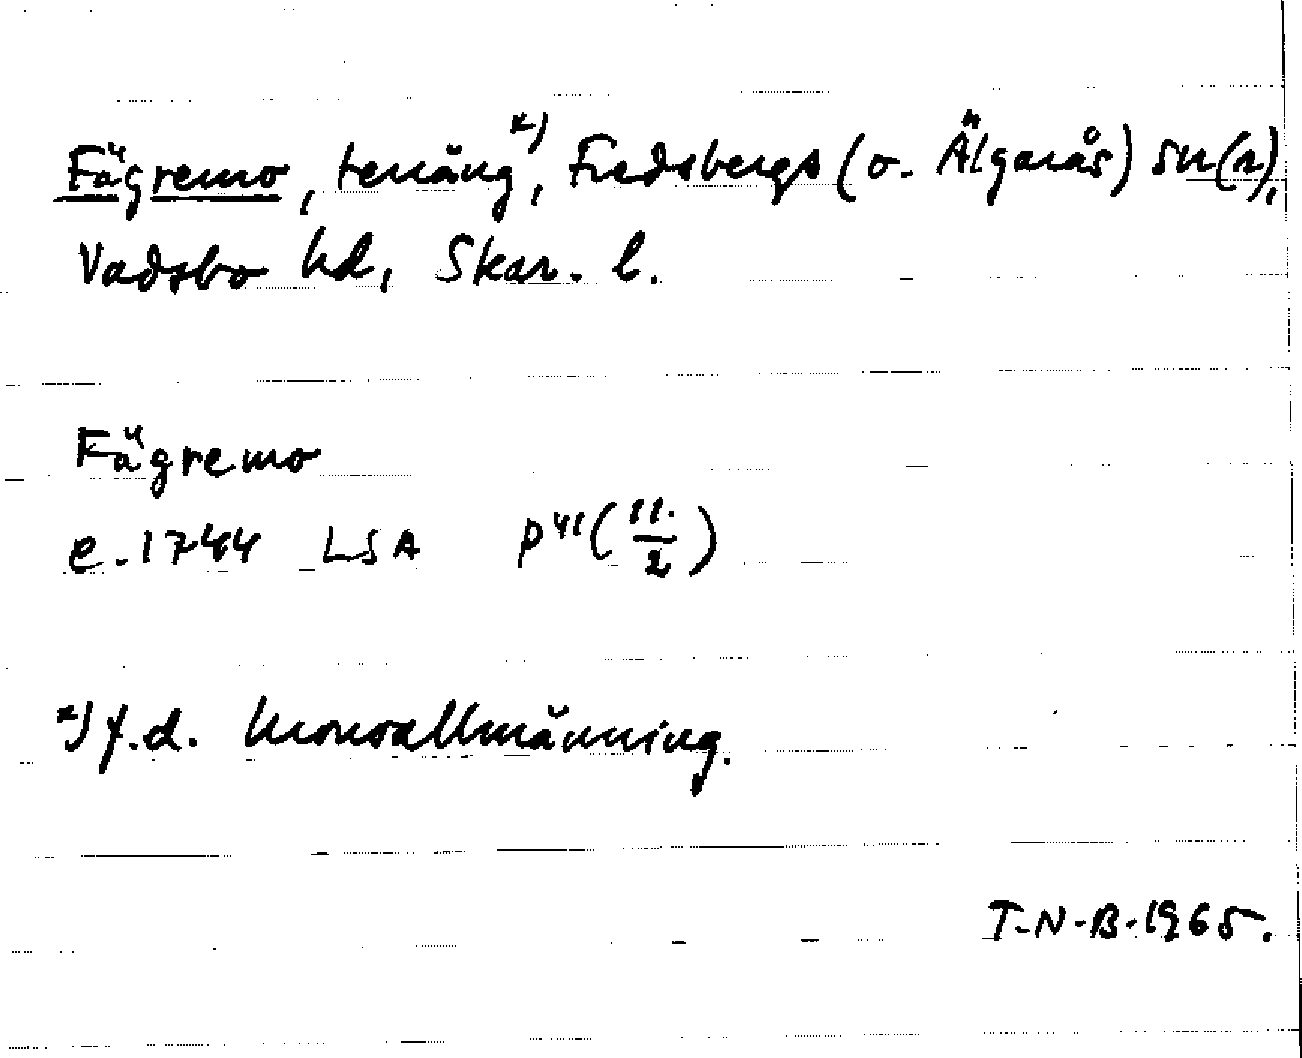 Fägremo, terräng x), Fredsbergs (o. Älgarås) sn(r),
Vadsbo hd, Skar. l.
Fägremo
e. 1744 LSA P 41 (11./2)
x) f.d. kronoallmänning.
T-N-B-1965.